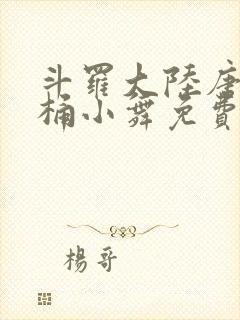 斗羅大陸唐
桶小舞免費
楊哥